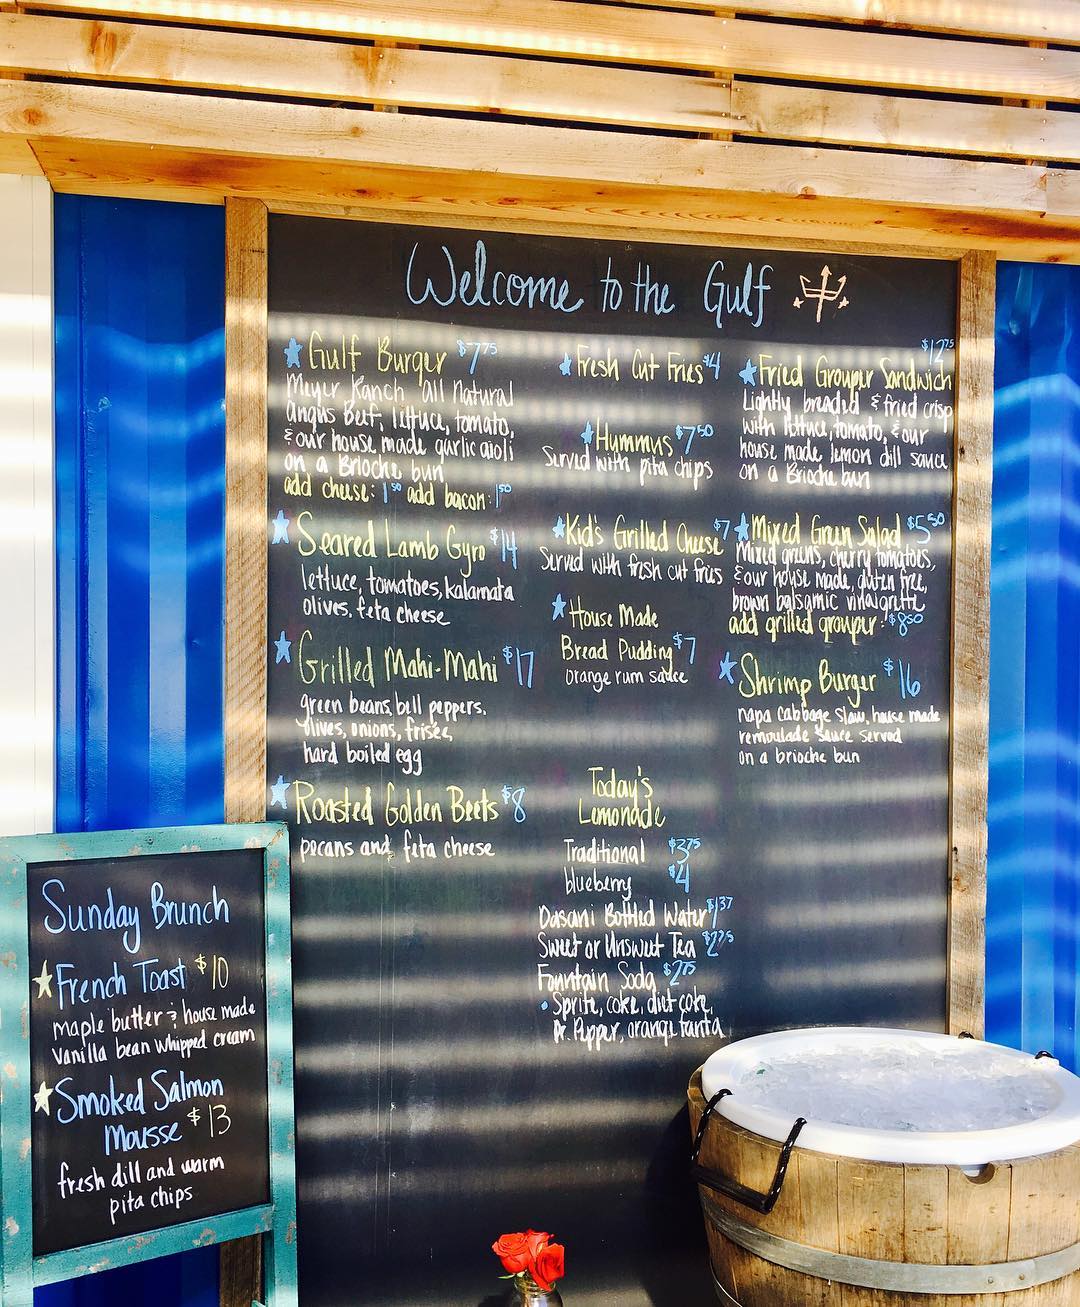 Welcome to the Gulf
Gulf Burger $7.75
Meyer Ranch all Natural
Angus Beef, lettuce, tomato,
& our house made garlic aioli
on a Brioche bun
add cheese: 1.50 add bacon: 1.50
Seared Lamb Gyro $14
lettuce, tomatoes, kalamata
olives, feta cheese
Grilled Mahi-Mahi $17
green beans, bell peppers,
olives, onions, frisée,
hard boiled egg
Roasted Golden Beets $8
pecans and feta cheese
Fresh Cut Fries $4
Hummus $7.50
Served with pita chips
Kid's Grilled Cheese $7
Served with fresh cut fries
House Made
Bread Pudding $7
orange rum sauce
Today's
Lemonade
Traditional $3.75
blueberry $4
Dasani Bottled Water $1.37
Sweet or Unsweet Tea $2.25
Fountain Soda $2.75
• Sprite, coke, diet coke,
Dr. Pepper, orange fanta
$12.75
Fried Grouper Sandwich
Lightly breaded & fried crisp
with lettuce, tomato, & our
house made lemon dill sauce
on a Brioche bun
Mixed Green Salad $5.50
Mixed greens, cherry tomatoes,
& our house made, gluten free,
brown balsamic vinaigrette
add grilled grouper: $8.50
Shrimp Burger $16
napa cabbage slaw, house made
remoulade sauce served
on a brioche bun
Sunday Brunch
French Toast $10
maple butter & house made
vanilla bean whipped cream
Smoked Salmon
Mousse $13
fresh dill and warm
pita chips